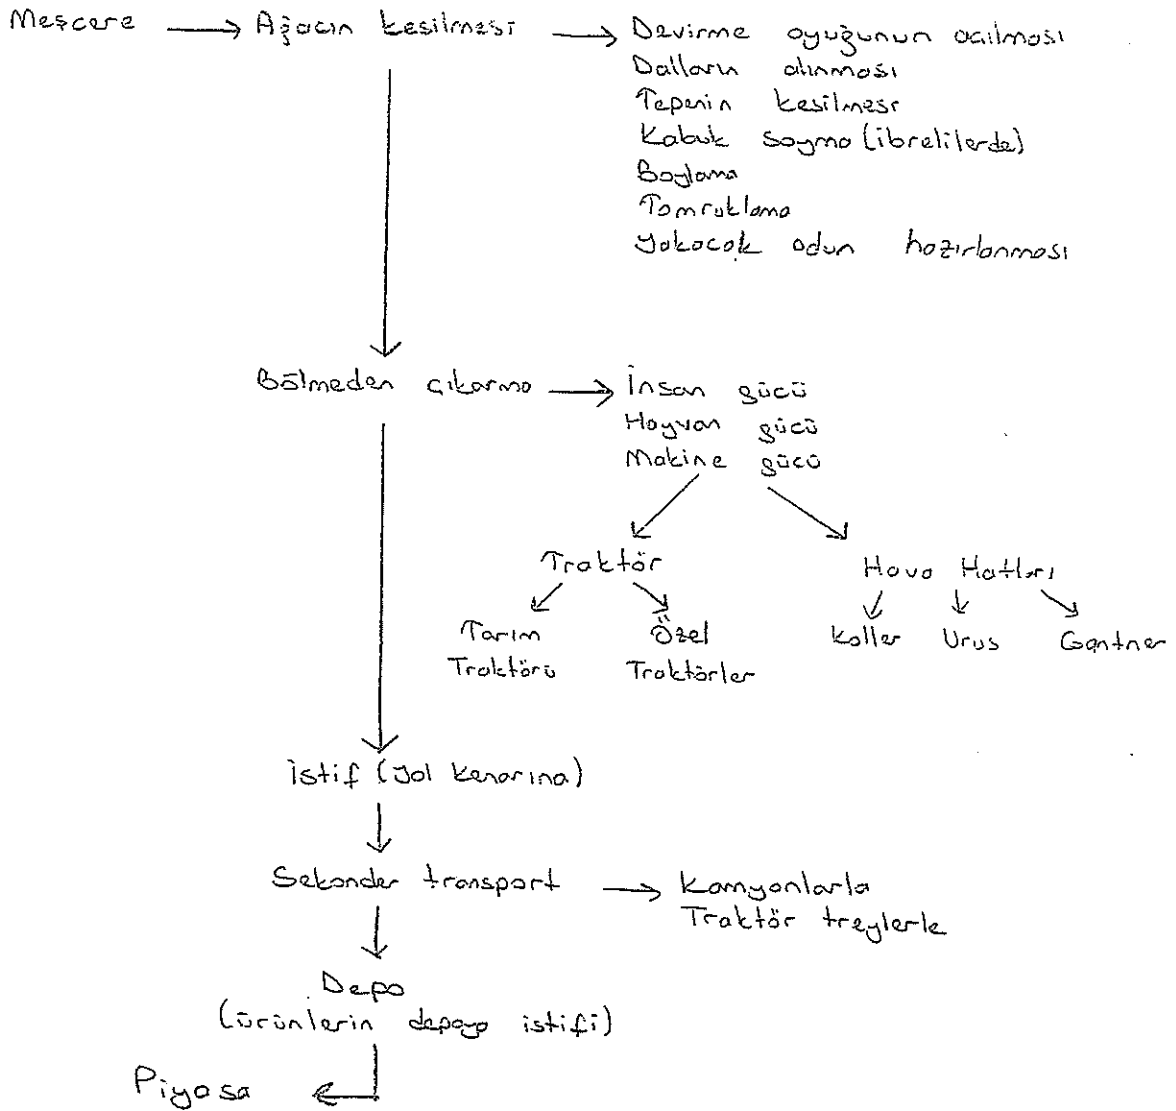 Meşcere → Ağacın kesilmesi → Devirme oyuğunun açılması
Dalların alınması
Tepenin kesilmesi
Kabuk soyma (ibrelilerde)
Boylama
Tomruklama
Yakacak odun hazırlanması
Bölmeden çıkarma → İnsan gücü
Hayvan gücü
Makine gücü
Traktör
Hava Hatları
Tarım Traktörü
Özel Traktörler
Koller Urus Gantner
İstif (yol kenarına)
Sekonder transport → Kamyonlarla
Traktör treylerle
Depo
(ürünlerin depoya istifi)
Piyasa